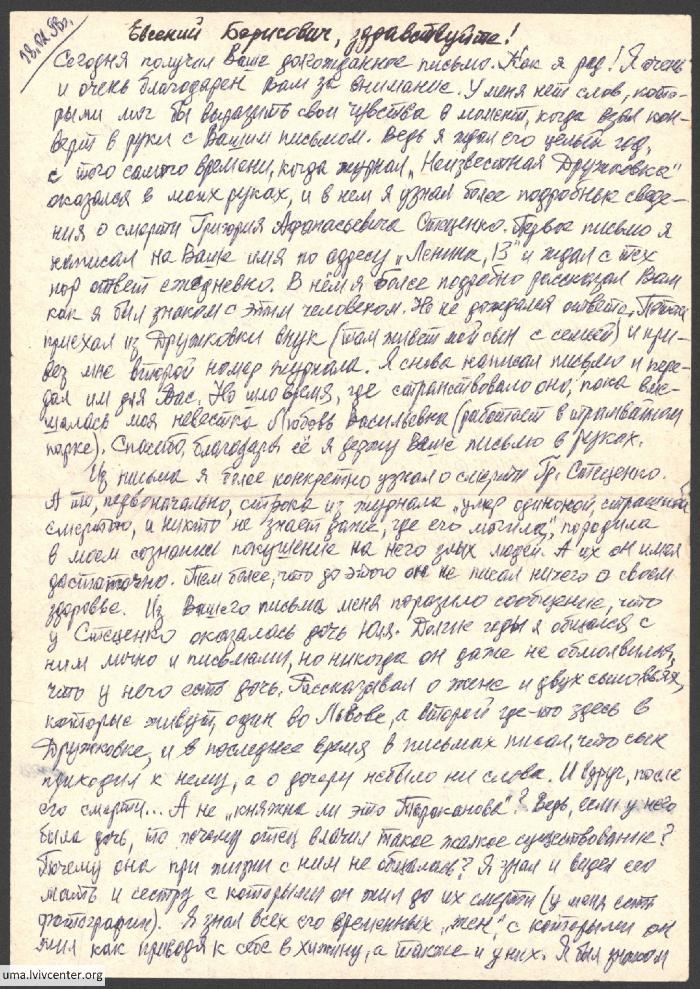 28.12.98г.
Евгений Борисович, здравствуйте!
Сегодня получил Ваше долгожданное письмо. Как я рад! Я очень
и очень благодарен Вам за внимание. У меня нет слов, кото-
рыми мог бы выразить свои чувства в момент, когда взял кон-
верт в руки с Вашим письмом. Ведь я ждал его целый год,
с того самого времени, когда журнал „Неизвестная Дружковка"
оказался в моих руках, и в нем я узнал более подробные сведе-
ния о смерти Григория Афанасьевича Стеценко. Первое письмо я
написал на Ваше имя по адресу „Ленина, 13" и ждал с тех
пор ответ ежедневно. В нём я более подробно рассказал Вам
как я был знаком с этим человеком. Но не дождался ответа. Потом
приехал из Дружковки внук (там живет мой сын с семьей) и при-
вез мне второй номер журнала. Я снова написал письмо и пере-
дал им для Вас. Но шло время, где странствовало оно, пока вме-
шалась моя невестка Любовь Васильевна (работает в трамвайном
парке). Спасибо, благодаря ей я держу Ваше письмо в руках.
Из письма я более конкретно узнал о смерти Гр. Стеценко.
А то, первоначально, строка из журнала „умер одинокой, страшной
смертью, и никто не знает даже, где его могила", породила
в моем сознании покушение на него злых людей. А их он имел
достаточно. Тем более, что до этого он не писал ничего о своем
здоровье. Из Вашего письма меня поразило сообщение, что
у Стеценко оказалась дочь Юля. Долгие годы я общался с
ним лично и письмами, но никогда он даже не обмолвился,
что у него есть дочь. Рассказывал о жене и двух сыновьях,
которые живут, один во Львове, а второй где-то здесь в
Дружковке, и в последнее время в письмах писал, что сын
приходил к нему, а о дочери небыло ни слова. И вдруг, после
его смерти... А не „княжна ли это Тараканова"? Ведь, если у него
была дочь, то почему отец влачил такое жалкое существование?
Почему она при жизни с ним не общалась? Я знал и видел его
мать и сестру с которыми он жил до их смерти (у меня есть
фотографии). Я знал всех его временных „жен", с которыми он
жил как приводя к себе в хижину, а также и у них. Я был знаком
uma.lvivcenter.org